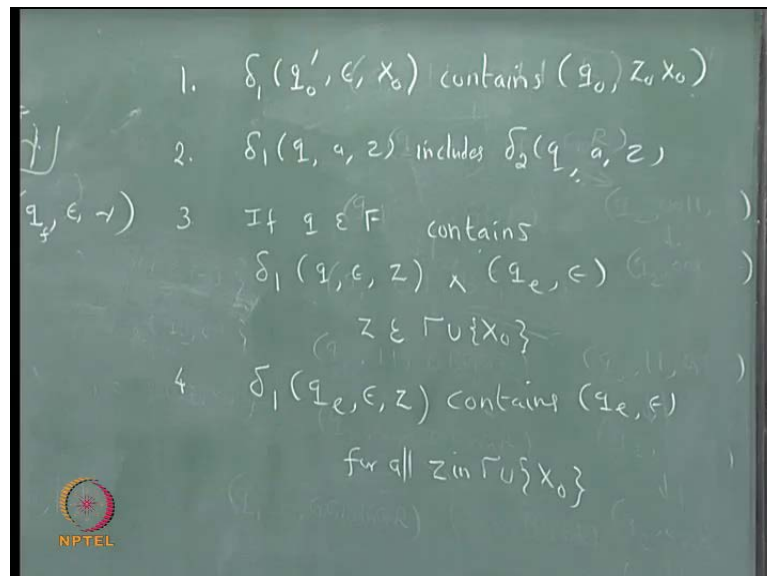 1. δ₁(q₀', ε, X₀) contains (q₀, Z₀ X₀)
2. δ₁(q, a, z) includes δ₂(q, a, z)
(q_f, ε, γ) 3 If q ε F contains
δ₁(q, ε, z) ∧ (q_e, ε)
z ε Γ ∪ {X₀}
4 δ₁(q_e, ε, z) contains (q_e, ε)
for all z in Γ ∪ {X₀}
NPTEL